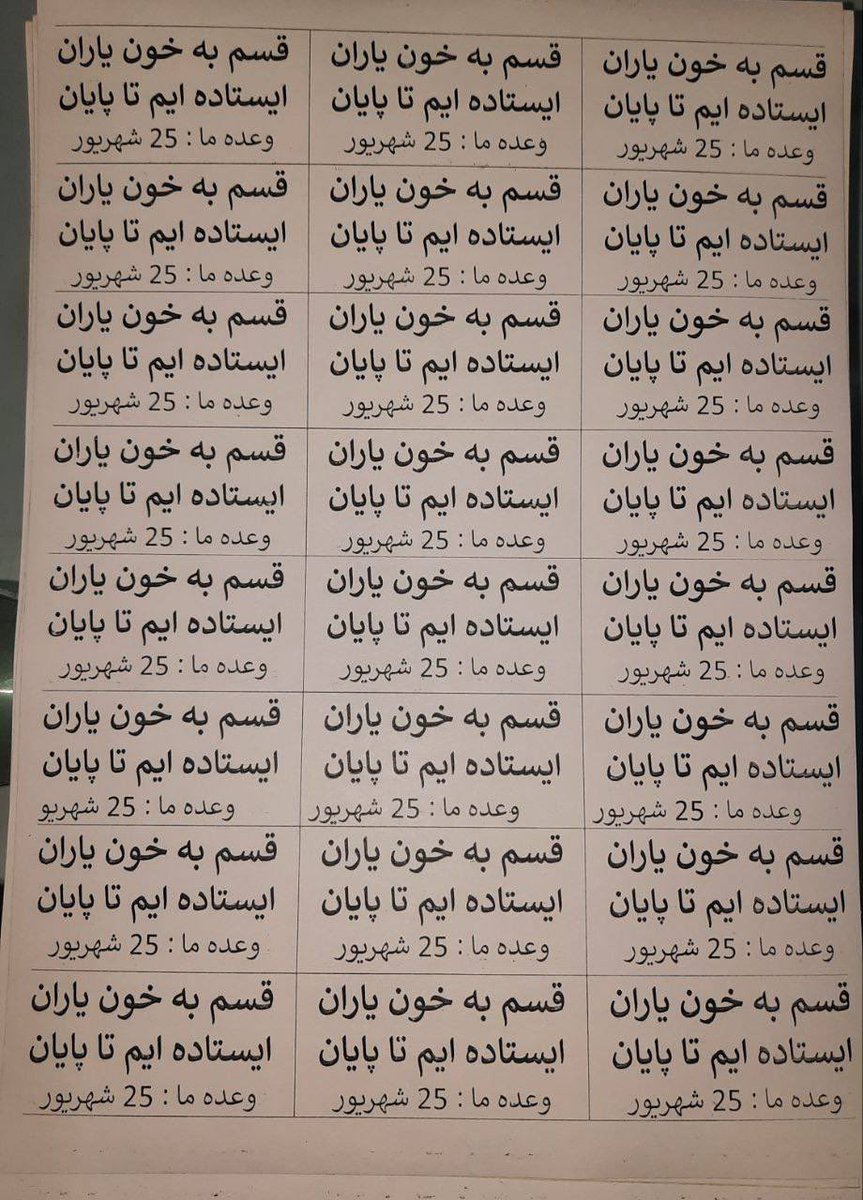 قسم به خون یاران
ایستاده ایم تا پایان
وعده ما : 25 شهریور
قسم به خون یاران
ایستاده ایم تا پایان
وعده ما : 25 شهریور
قسم به خون یاران
ایستاده ایم تا پایان
وعده ما : 25 شهریور
قسم به خون یاران
ایستاده ایم تا پایان
وعده ما : 25 شهریور
قسم به خون یاران
ایستاده ایم تا پایان
وعده ما : 25 شهریور
قسم به خون یاران
ایستاده ایم تا پایان
وعده ما : 25 شهریور
قسم به خون یاران
ایستاده ایم تا پایان
وعده ما : 25 شهریور
قسم به خون یاران
ایستاده ایم تا پایان
وعده ما : 25 شهریور
قسم به خون یاران
ایستاده ایم تا پایان
وعده ما : 25 شهریور
قسم به خون یاران
ایستاده ایم تا پایان
وعده ما : 25 شهریور
قسم به خون یاران
ایستاده ایم تا پایان
وعده ما : 25 شهریور
قسم به خون یاران
ایستاده ایم تا پایان
وعده ما : 25 شهریور
قسم به خون یاران
ایستاده ایم تا پایان
وعده ما : 25 شهریور
قسم به خون یاران
ایستاده ایم تا پایان
وعده ما : 25 شهریور
قسم به خون یاران
ایستاده ایم تا پایان
وعده ما : 25 شهریور
قسم به خون یاران
ایستاده ایم تا پایان
وعده ما : 25 شهریور
قسم به خون یاران
ایستاده ایم تا پایان
وعده ما : 25 شهریور
قسم به خون یاران
ایستاده ایم تا پایان
وعده ما : 25 شهریو
قسم به خون یاران
ایستاده ایم تا پایان
وعده ما : 25 شهریور
قسم به خون یاران
ایستاده ایم تا پایان
وعده ما : 25 شهریور
قسم به خون یاران
ایستاده ایم تا پایان
وعده ما : 25 شهریور
قسم به خون یاران
ایستاده ایم تا پایان
وعده ما : 25 شهریور
قسم به خون یاران
ایستاده ایم تا پایان
وعده ما : 25 شهریور
قسم به خون یاران
ایستاده ایم تا پایان
وعده ما : 25 شهریور